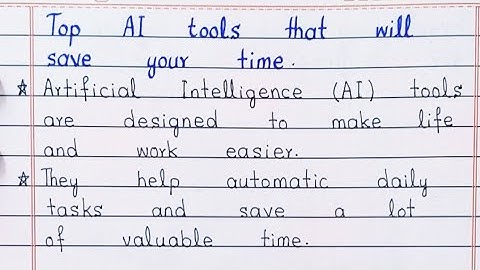 Top AI tools that will
save your time.
☆ Artificial Intelligence (AI) tools
are designed to make life
and work easier.
☆ They help automatic daily
tasks and save a lot
of valuable time.